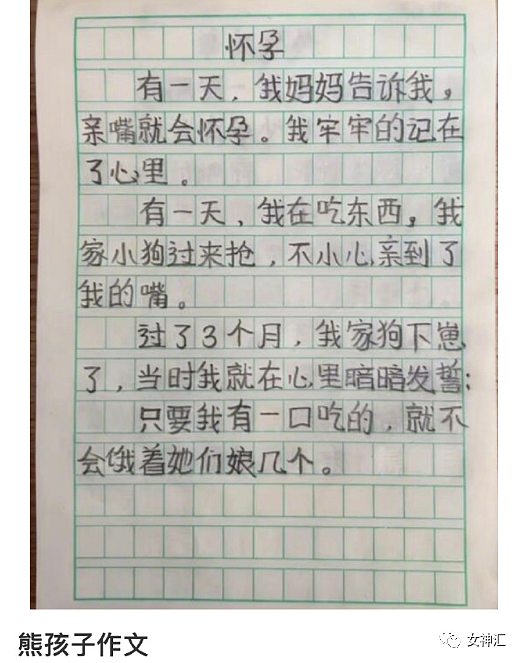 怀孕
有一天，我妈妈告诉我，
亲嘴就会怀孕。我牢牢的记在
了心里。
有一天，我在吃东西，我
家小狗过来抢，不小心亲到了
我的嘴。
过了3个月，我家狗下崽
了，当时我就在心里暗暗发誓：
只要我有一口吃的，就不
会饿着她们娘几个。
熊孩子作文
女神汇